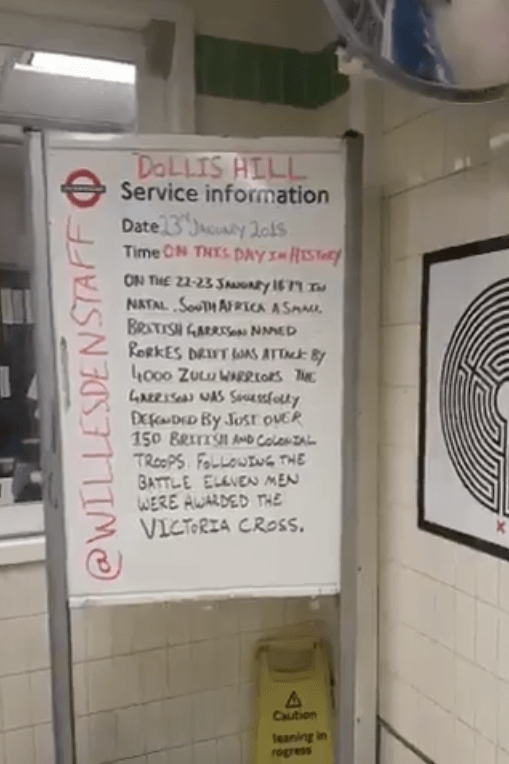 DOLLIS HILL
Service information
Date 23rd JANUARY 2018
Time ON THIS DAY IN HISTORY
ON THE 22-23 JANUARY 1879 IN
NATAL, SOUTH AFRICA A SMALL
BRITISH GARRISON NAMED
RORKES DRIFT WAS ATTACK BY
4000 ZULU WARRIORS. THE
GARRISON WAS SUCESSFULLY
DEFENDED BY JUST OVER
150 BRITISH AND COLONIAL
TROOPS. FOLLOWING THE
BATTLE ELEVEN MEN
WERE AWARDED THE
VICTORIA CROSS.
@WILLESDENSTAFF
Caution
leaning in
rogress
X